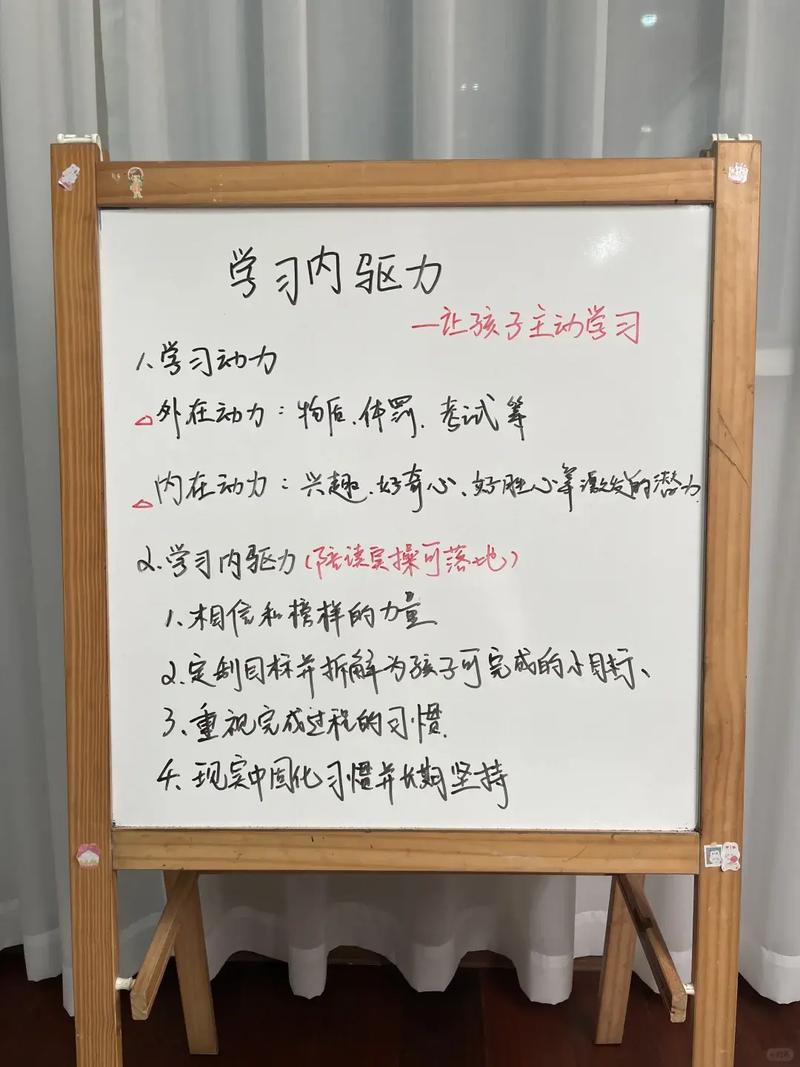 学习内驱力
—让孩子主动学习
1.学习动力
△外在动力：物质、体罚、考试等
△内在动力：兴趣、好奇心、好胜心等激发的潜力
2.学习内驱力（陪读实操可落地）
1.相信和榜样的力量
2.定制目标并拆解为孩子可完成的小目标、
3.重视完成过程的习惯.
4.现实中固化习惯并长期坚持